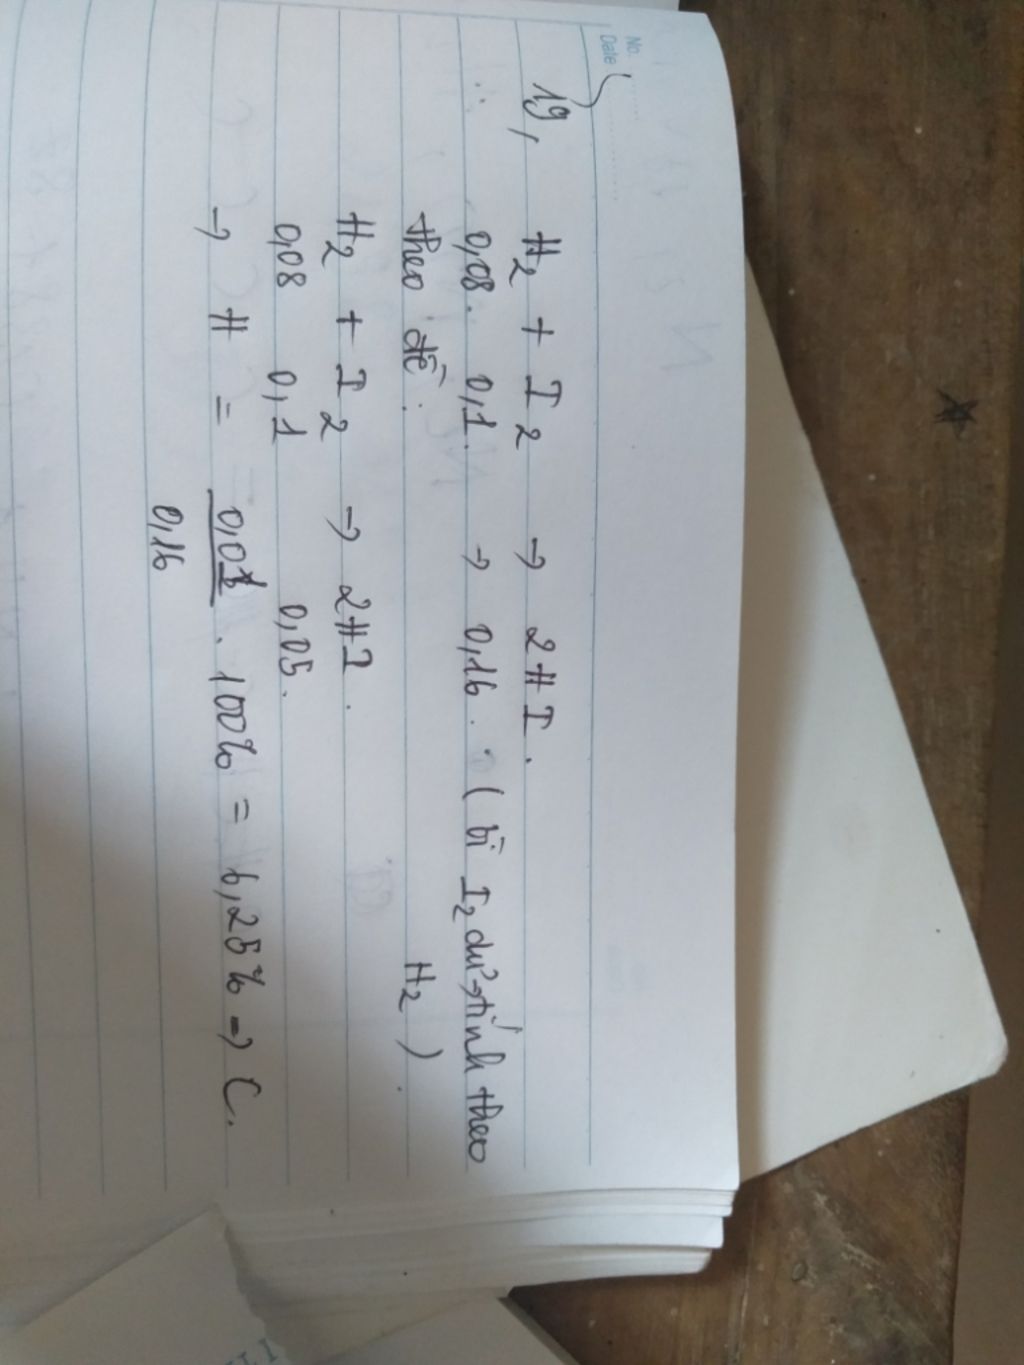 No.
Date
19, H2 + I2 → 2HI.
0,08. 0,1. → 0,16. (bì I2 dư → tính theo
H2).
theo đề:
H2 + I2 → 2HI.
0,08 0,1 0,05.
→ H = 0,01 . 100% = 6,25% → C.
0,16